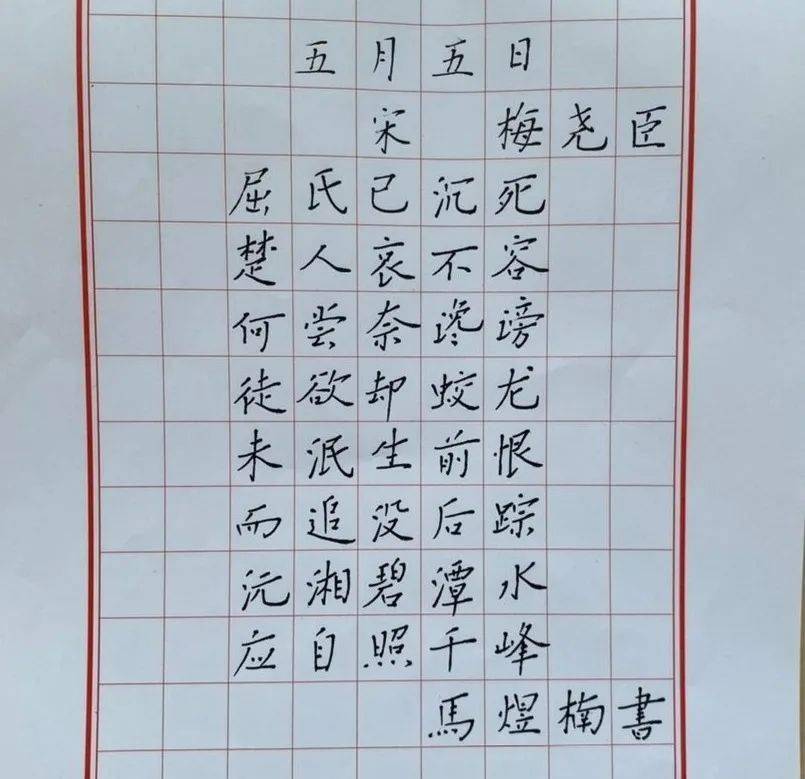 五月五日
宋 梅尧臣
屈氏已沉死
楚人哀不容
何尝奈谗谤
徒欲却蛟龙
未泯生前恨
而追没后踪
沅湘碧潭水
应自照千峰
馬煜楠書